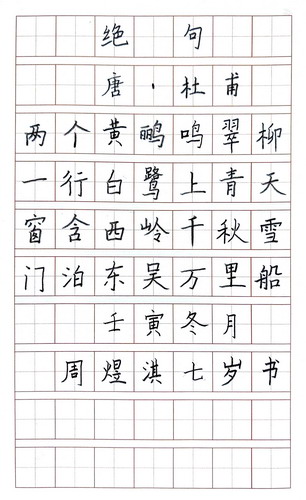 绝句
唐·杜甫
两个黄鹂鸣翠柳
一行白鹭上青天
窗含西岭千秋雪
门泊东吴万里船
壬寅冬月
周煜淇七岁书